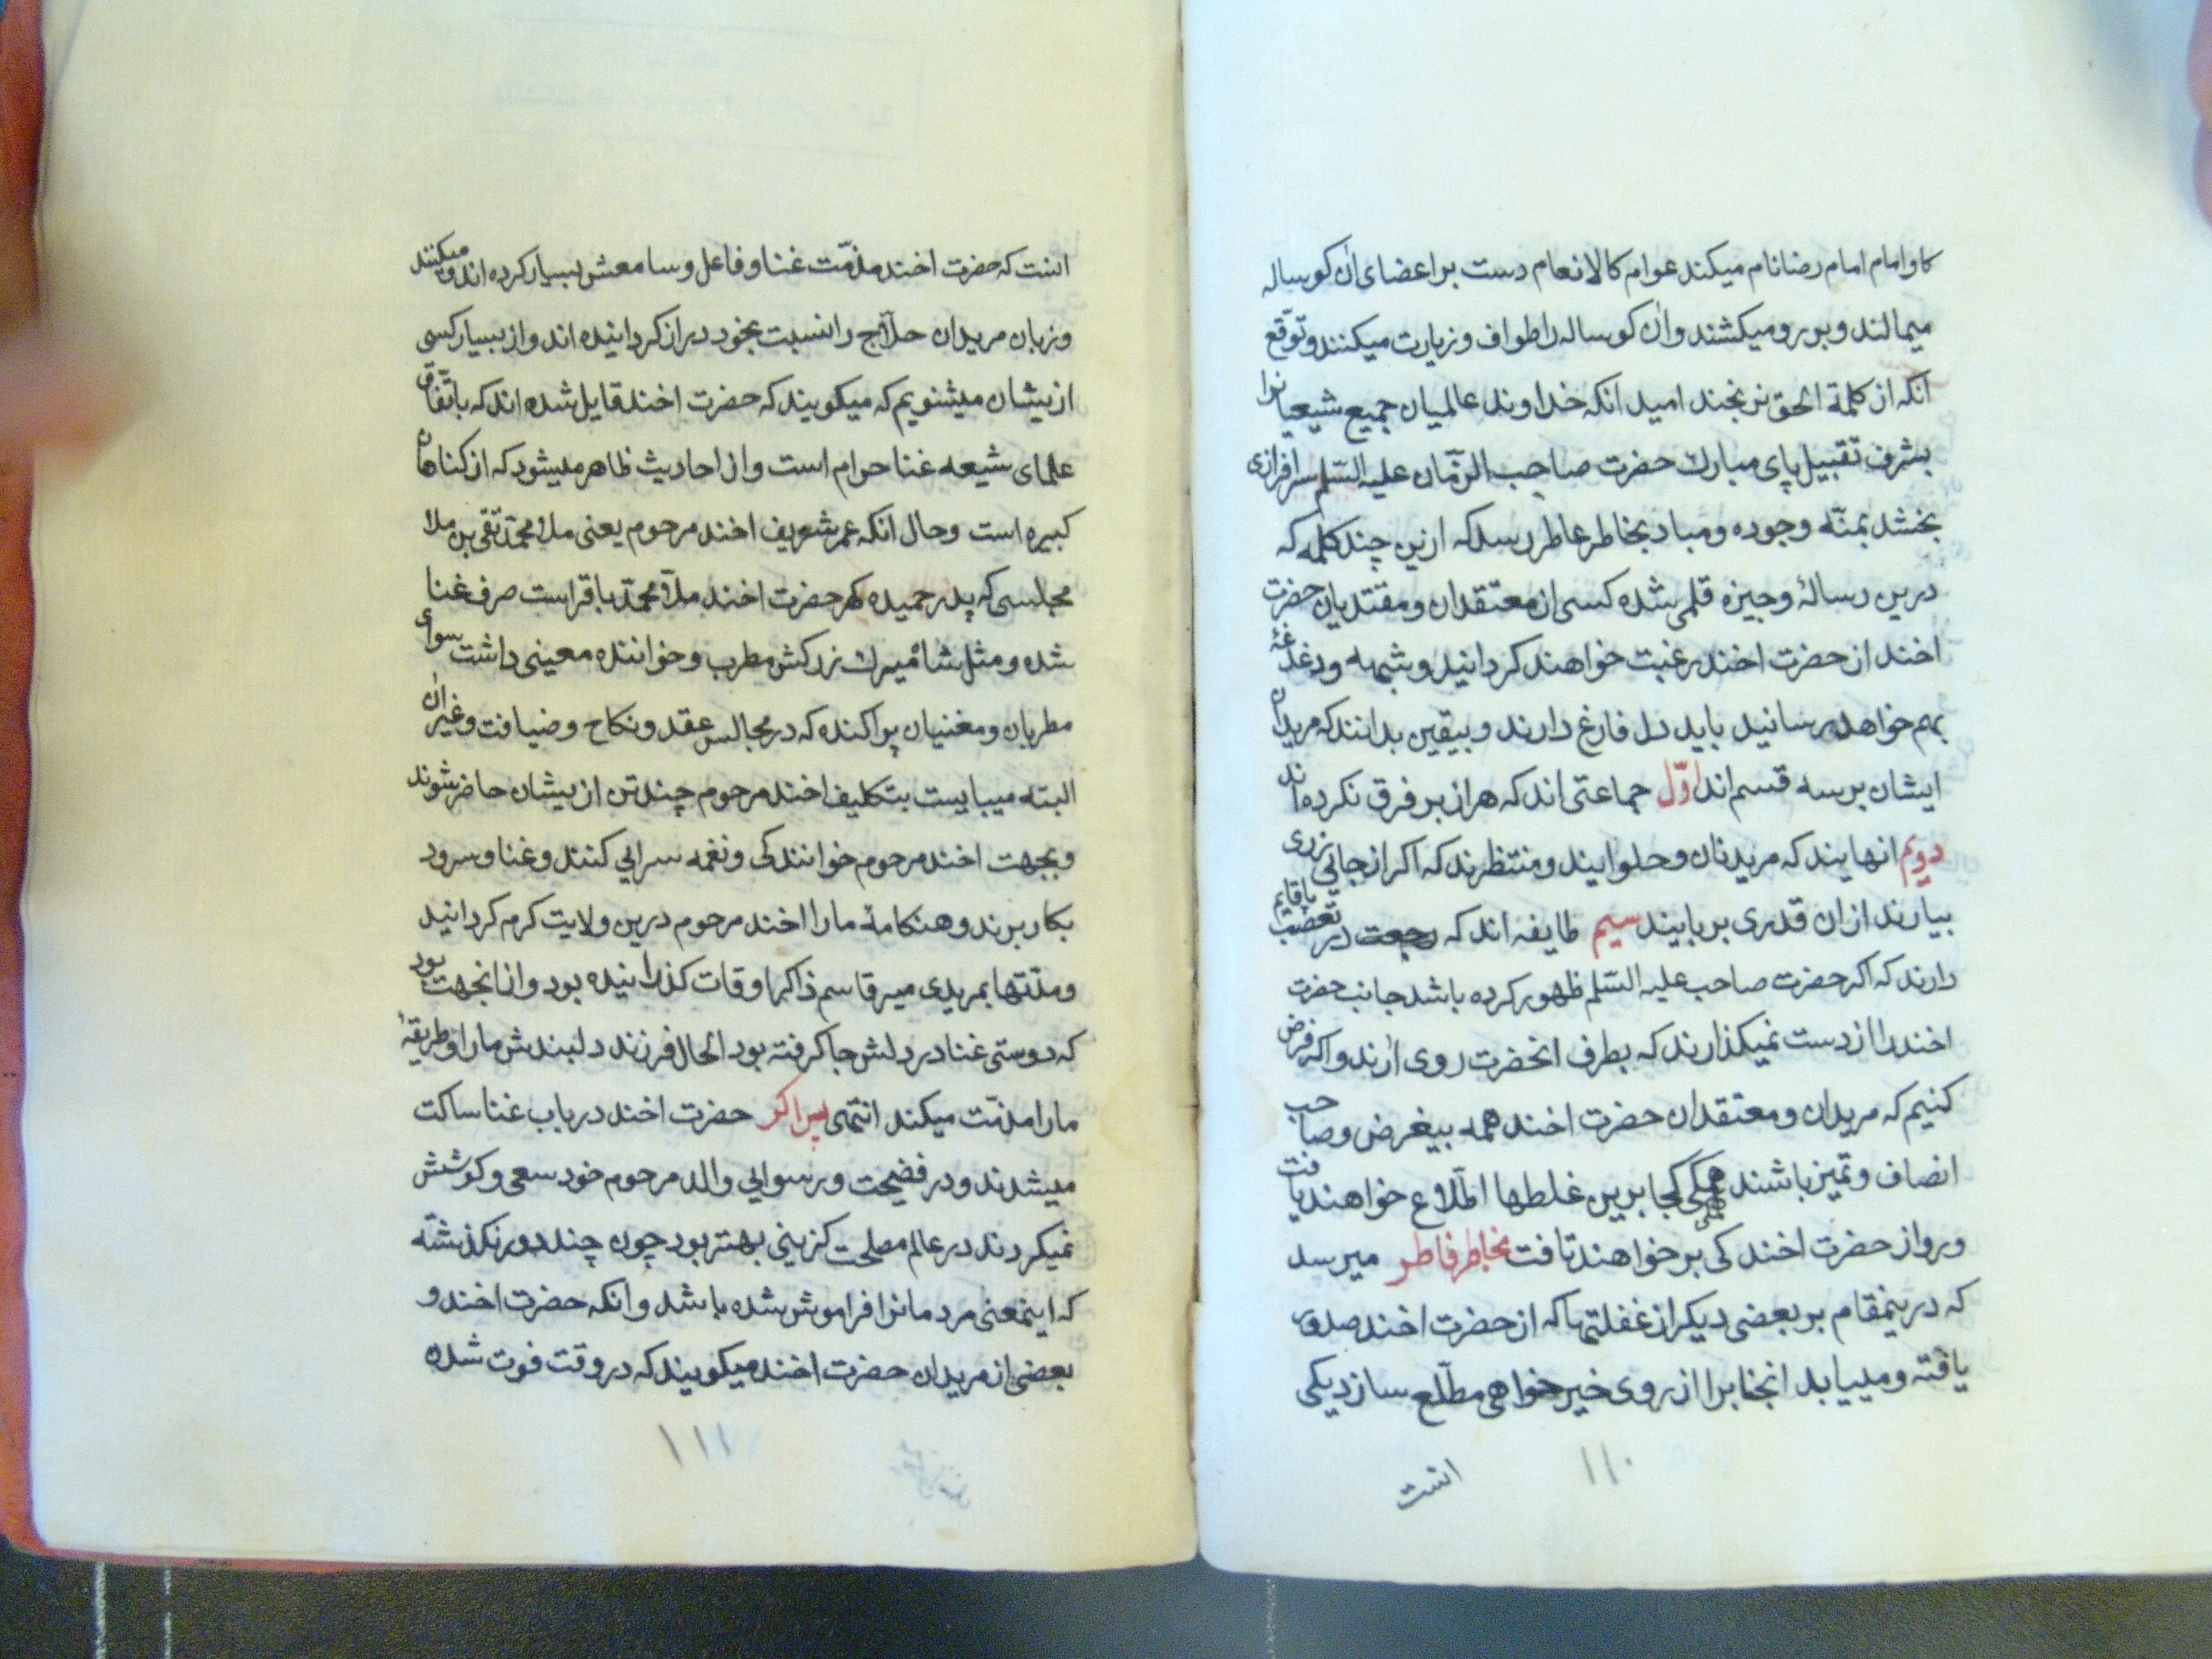 کاو امام امام رضا نام میکند عوام کالانعام دست بر اعضای ان کوساله
میمالند و بر رو میکشند و ان کوساله را طواف و زیارت میکنند و توقع
انکه از کلمة الحق نرنجند امید انکه خداوند عالمیان جمیع شیعیانرا
بشرف تقبیل پای مبارک حضرت صاحب الزمان علیه السلم سرافرازی
بخشد بمنّه وجوده و مباد بخاطر عاطر رسد که ازین چند کلمه که
درین رسالۀ وجیزه قلمی شده کسی از معتقدان و مقتدیان حضرت
اخند از حضرت اخند رغبت خواهند کردانید و شبهه و دغدغۀ
بهم خواهد رسانید باید دل فارغ دارند و بیقین بدانند که مریدان
ایشان بر سه قسم اند اوّل جماعتی اند که هر از بر فرق نکرده اند
دویم انهایند که مرید نان و حلوایند و منتظرند که اکر از جائی زری
بیارند از ان قدری بربایند سیم طایفه اند که در تعصب باقایم
دارند که اکر حضرت صاحب علیه السلم ظهور کرده باشد جانب حضرت
اخند را از دست نمیکذارند که بطرف انحضرت روی ارند و اکر فرض
کنیم که مریدان و معتقدان حضرت اخند همه بیغرض و صاحب
انصاف و تمیز باشند همکی کجا برین غلطها اطّلاع خواهند یافت
و رو از حضرت اخند کی بر خواهند تافت بخاطر فاطر میرسد
که درینمقام بر بعضی دیکر از غفلتها که از حضرت اخند صدور
یافته و مییابد انجنابرا از روی خیرخواهی مطّلع سازد یکی
۱۱۰
انست
انست که حضرت اخند مذمّت غنا و فاعل و سامعش بسیار کرده اند و میکنند
و زبان مریدان حلّاج را نسبت بخود دراز کردانیده اند و از بسیار کسی
ازیشان میشنویم که میکویند که حضرت اخند قایل شده اند که باتّفاق
علمای شیعه غنا حرام است و از احادیث ظاهر میشود که از کناهان
کبیره است و حال انکه عمر شریف اخند مرحوم یعنی ملا محمّد تقی بن ملا
مجلسی که پدر حمیده کهر حضرت اخند ملّا محمّد باقر است صرف غنا
شده و مثل شاه میرک زرکش مطرب و خواننده معینی داشت سوای
مطربان و مغنیان پراکنده که در مجالس عقد و نکاح و ضیافت و غیر ان
البته میبایست بتکلیف اخند مرحوم چند تن ازیشان حاضر شوند
و بجهت اخند مرحوم خوانندکی و نغمه سرایی کنند و غنا و سرود
بکار برند و هنکامۀ ما را اخند مرحوم درین ولایت کرم کردانید
و مدّتها بمریدی میر قاسم ذاکر اوقات کذرانیده بود و از انجهت بود
که دوستی غنا در دلش جا کرفته بود الحال فرزند دلبندش ما را و طریقۀ
ما را مذمّت میکند انتهی پس اکر حضرت اخند در باب غنا ساکت
میشدند و در فضیحت و رسوایی والد مرحوم خود سعی و کوشش
نمیکردند در عالم مصلحت کزینی بهتر بود چون چند دور نکذشته
که اینمعنی مردمانرا فراموش شده باشد و انکه حضرت اخند و
بعضی از مریدان حضرت اخند میکویند که در وقت فوت شده
۱۱۱